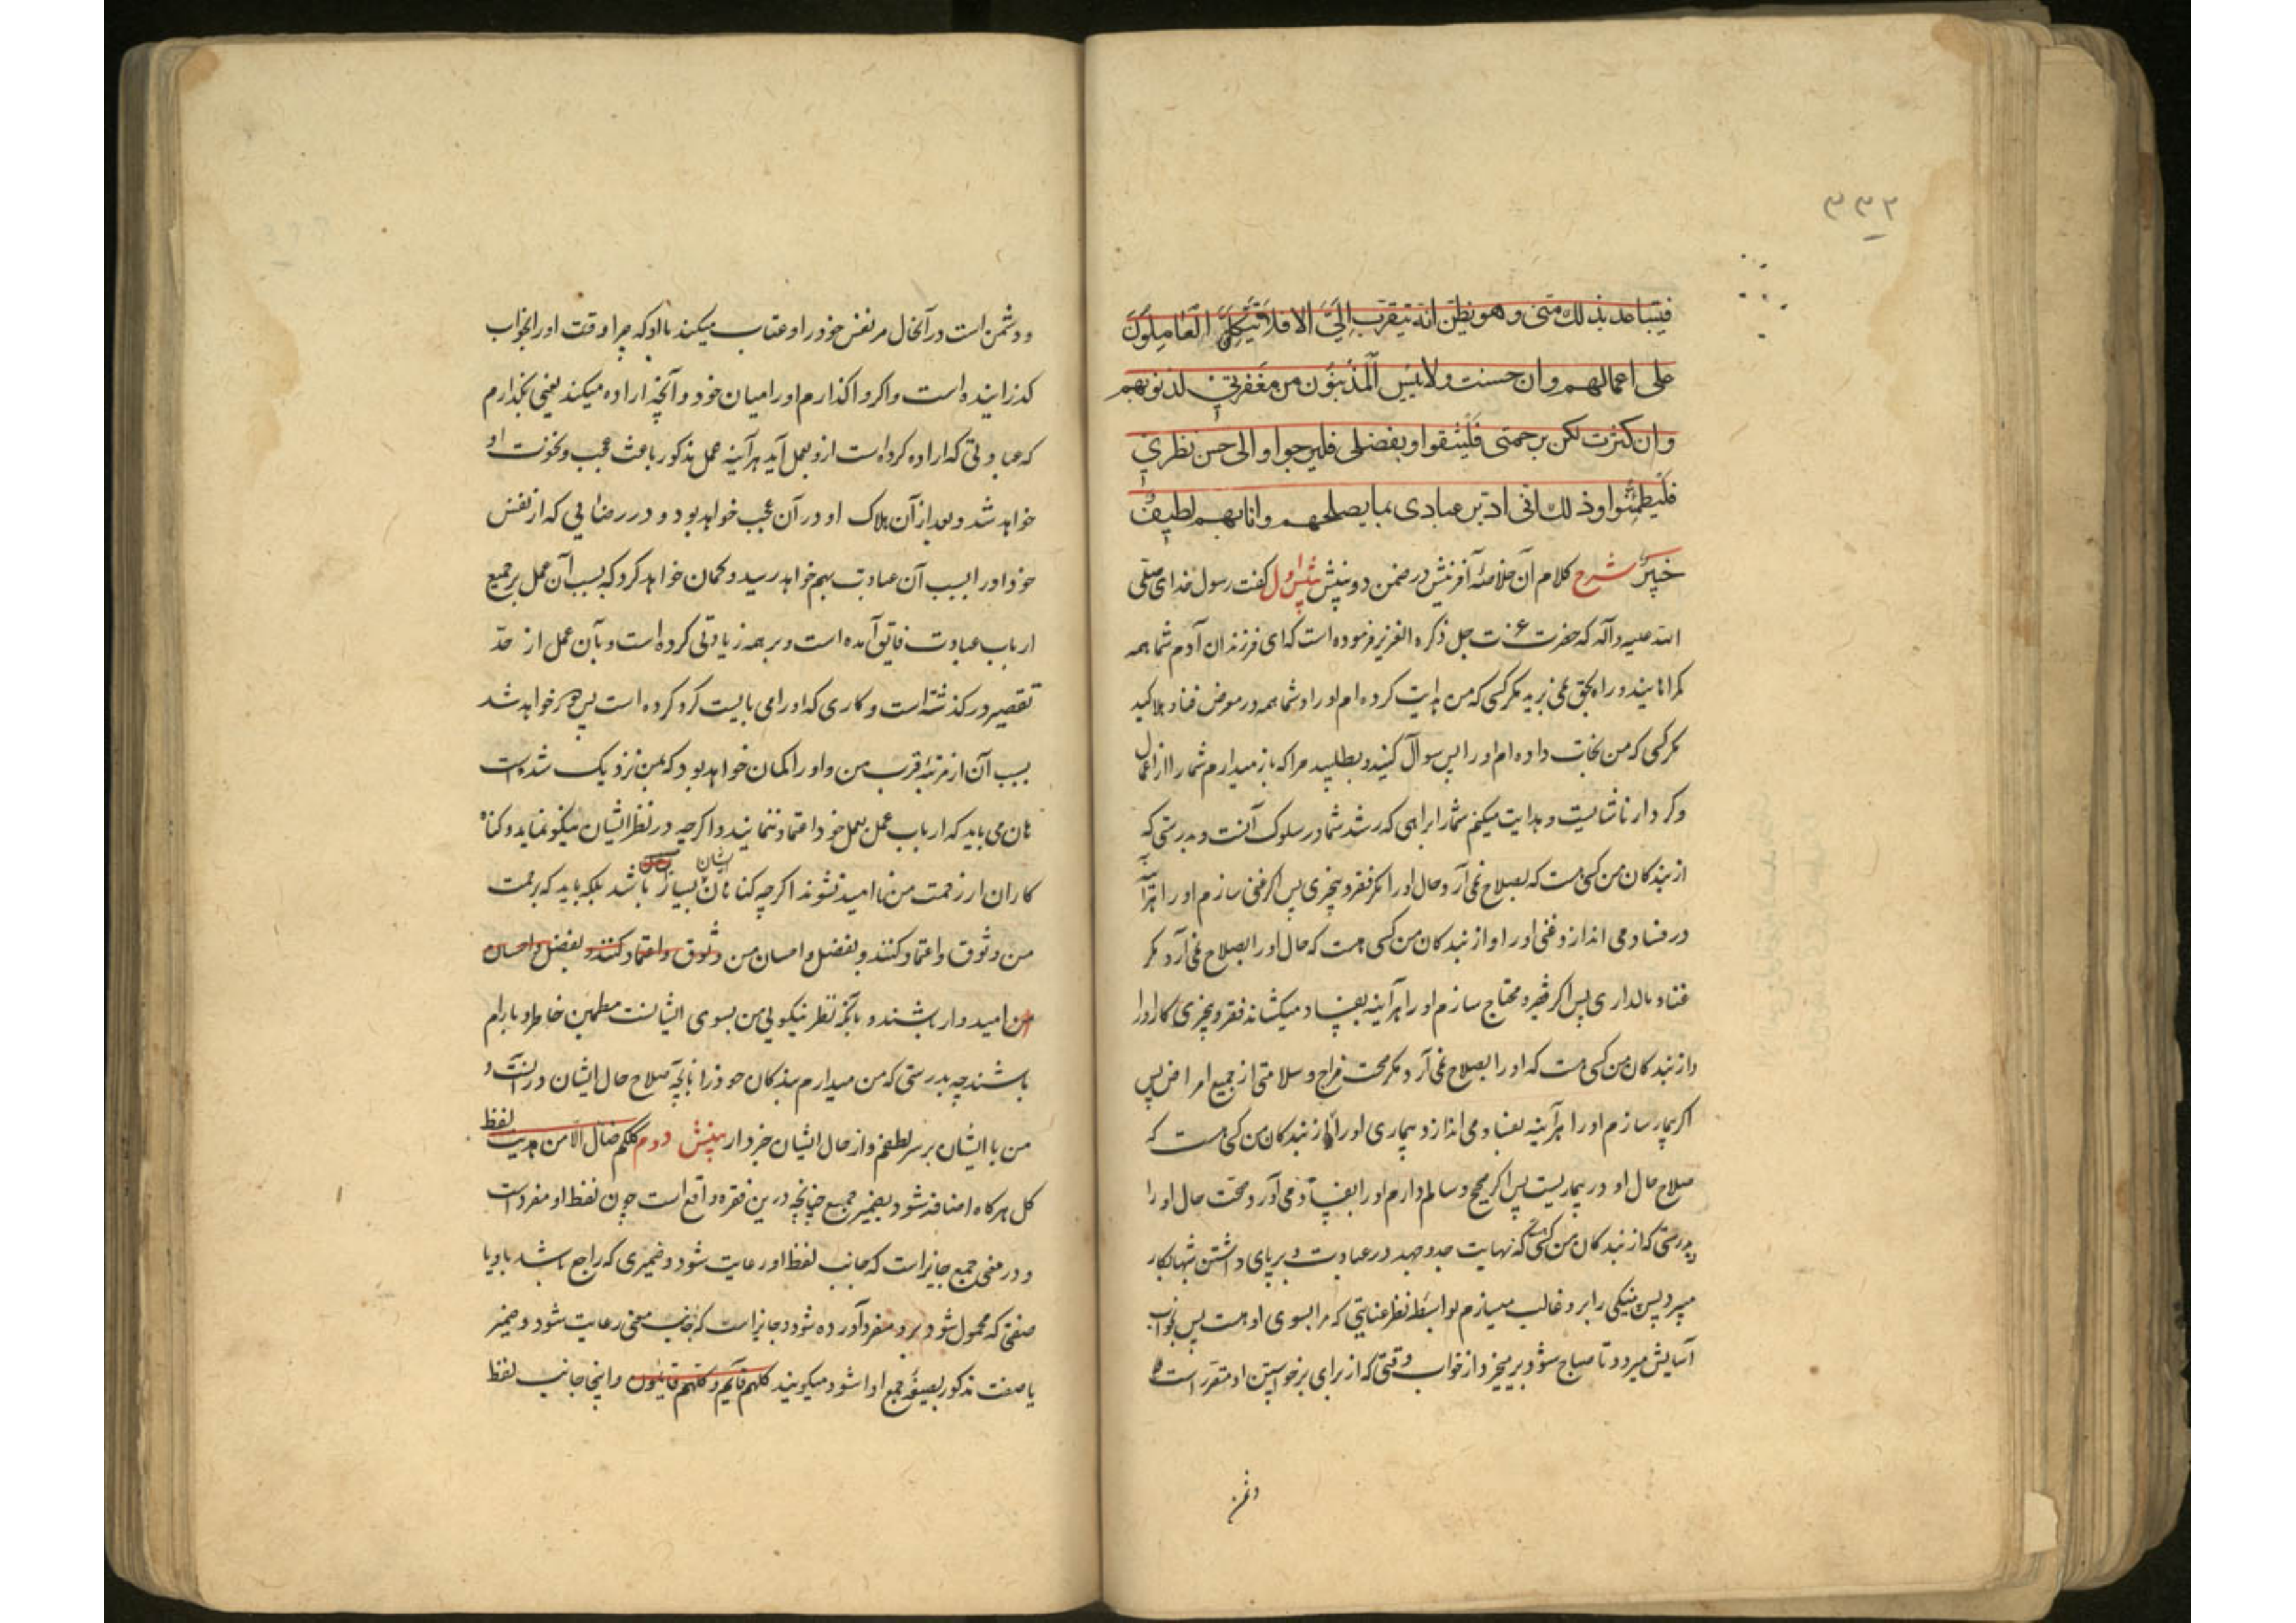 ۳۳۲
فیتباعد بذلك منی وهو یظن انه یتقرب الیَّ الا فلا یتکل العاملون
علی اعمالهم وان حسنت ولا ییس المذنبون من مغفرتی لذنوبهم
وان کثرت لکن برحمتی فلیثقوا وبفضلی فلیرجوا والی حسن نظری
فلیطمئنوا وذلك انی ادبر عبادی بما یصلحهم وانا بهم لطیف
خبیر شرح کلام آن خلاصهٔ آفرینش در ضمن دو بینش بینش اول گفت رسول خدای صلی
الله علیه وآله که حضرت عزت جل ذکره العزیز فرموده است که ای فرزندان آدم شما همه
گمراهانیند و راه بحق نمی برید مگر کسی که من هدایت کرده ام او را و شما همه در معرض فنا و هلاکید
مگر کسی که من نجات داده ام او را پس سوال کنید و بطلبید مرا که باز میدارم شما را از اعمال
و کردار ناشایست و هدایت میکنم شما را براهی که رشد شما در سلوک آنست و بدرستی که
از بندکان من کسی هست که بصلاح نمی آرد حال او را مگر فقر و بیچیزی پس اگر غنی سازم او را هرآینه
در فساد می اندازد غنی او را و از بندکان من کسی هست که حال او را بصلاح نمی آرد مگر
غنا و مالداری پس اگر فقیر و محتاج سازم او را هرآینه بفساد میکشاند فقر و بیچیزی کار او را
و از بندکان من کسی هست که او را بصلاح نمی آرد مگر صحت مزاج و سلامتی از جمیع امراض پس
اگر بیمار سازم او را هرآینه بفساد می اندازد بیماری او را و از بندکان من کسی هست که
صلاح حال او در بیماریست پس اگر صحیح و سالم دارم او را بفساد می آورد صحت حال او را
بدرستی که از بندکان من کسی هست که نهایت جد و جهد در عبادت و برپای داشتن شبها بکار
میبرد پس پینکی را برو غالب میسازم بواسطه نظر عنایتی که مرا بسوی او هست پس بخواب
آسایش میرود تا صباح شود و برمیخیزد از خواب وقتی که از برای برخواستن او مقرر است و
دشمن
و دشمن است در آنحال مر نفس خود را و عتاب میکند با او که چرا وقت او را بخواب
گذرانیده است و اگر واگذارم او را میان خود و آنچه اراده میکند یعنی بگذارم
که عبادتی که اراده کرده است ازو بعمل آید هرآینه عمل مذکور باعث عجب و نخوت او
خواهد شد و بعد از آن هلاک او در آن عجب خواهد بود و در رضایی که از نفس
خود او را بسبب آن عبادت بهم خواهد رسید و گمان خواهد کرد که بسبب آن عمل بر جمیع
ارباب عبادت فایق آمده است و بر همه زیادتی کرده است و بآن عمل از حدّ
تقصیر در گذشته است و کاری که او را می بایست کرد کرده است پس دور خواهد شد
بسبب آن از مرتبهٔ قرب من و او را گمان خواهد بود که بمن نزدیک شده است
هان می باید که ارباب عمل بعمل خود اعتماد ننمایند و اگرچه در نظر ایشان نیکو نماید و گناه
کاران از رحمت من ناامید نشوند اگرچه گناهان ایشان بسیار باشد بلکه باید که برحمت
من وثوق و اعتماد کنند و بفضل و احسان من وثوق و اعتماد کنند و بفضل و احسان
من امیدوار باشند و بآنکه نظر نیکویی من بسوی ایشانست مطمئن خاطر و بآرام
باشند چه بدرستی که من میدارم بندکان خود را بآنچه صلاح حال ایشان در آنست و
من با ایشان بر سر لطفم و از حال ایشان خبردار بینش دوم کلکم ضال الا من هدیت لفظ
کل هرگاه اضافه شود بضمیر جمع چنانچه درین فقره واقع است چون لفظ او مفرد است
و در معنی جمع جایز است که جانب لفظ او رعایت شود و ضمیری که راجع باشد باو یا
صفتی که محمول شود برو مفرد آورده شود و جایز است که جانب معنی رعایت شود و ضمیر
یا صفت مذکور بصیغهٔ جمع ادا شود میگویند کلهم قایم و کلهم قایمون و اینجا جانب لفظ